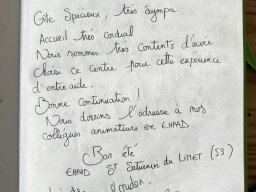 Gîte Spacieux, très sympa
Accueil très cordial
Nous sommes très contents d'avoir
choisi ce centre pour cette expérience
d'entre aide.
Bonne continuation !
Nous donnons l'adresse à nos
collègues animateurs en EHPAD
Bon été
EHPAD St Saturnin du LIMET (53)